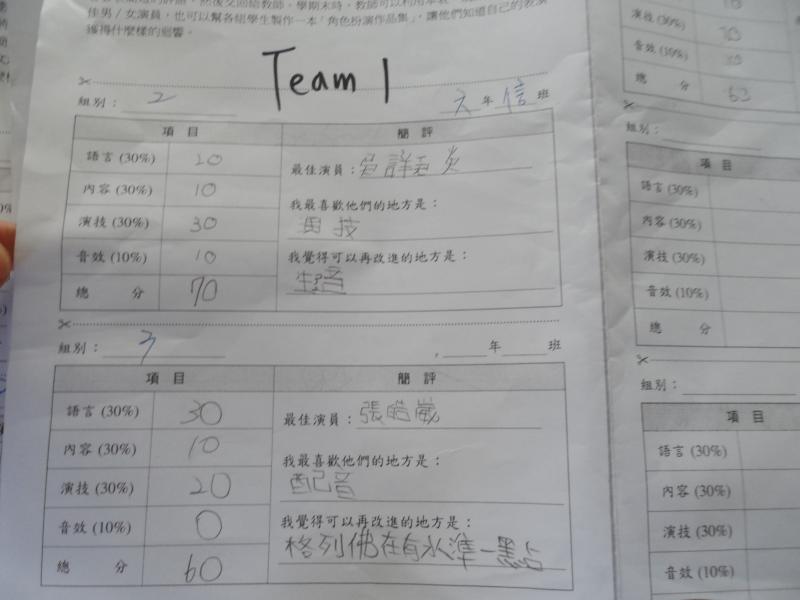 佳男/女演員,也可以幫各組學生製作一本「角色扮演作品集」,讓他們知道自己的表演
獲得什麼樣的迴響。
Team 1
組別: 2 六年信班
項目 簡評
語言(30%) 20
內容(30%) 10
演技(30%) 30
音效(10%) 10
總分 70
最佳演員:
我最喜歡他們的地方是:
技
我覺得可以再改進的地方是:
音
組別: 3 年 班
項目 簡評
語言(30%) 30
內容(30%) 10
演技(30%) 20
音效(10%) 0
總分 60
最佳演員:張皓崴
我最喜歡他們的地方是:
配音
我覺得可以再改進的地方是:
格列佛在有水準一點
演技(30%)
音效(10%)
總分 62
組別:
項目
語言(30%)
內容(30%)
演技(30%)
音效(10%)
總分
組別:
項目
語言(30%)
內容(30%)
演技(30%)
音效(10%)